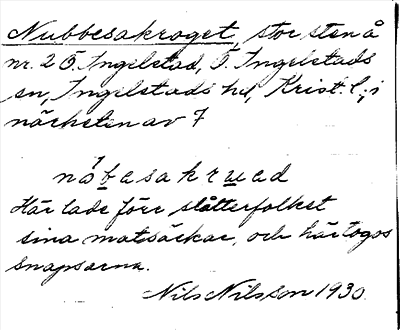 Nubbesakroget, stor sten å
nr. 2 Ö. Ingelstad, Ö. Ingelstads
sn, Ingelstads hd, Krist. l; i
närheten av 7
nåbasakruad
Här lade förr slåtterfolket
sina matsäckar, och här togos
snapsarna.
Nils Nilsson 1930.